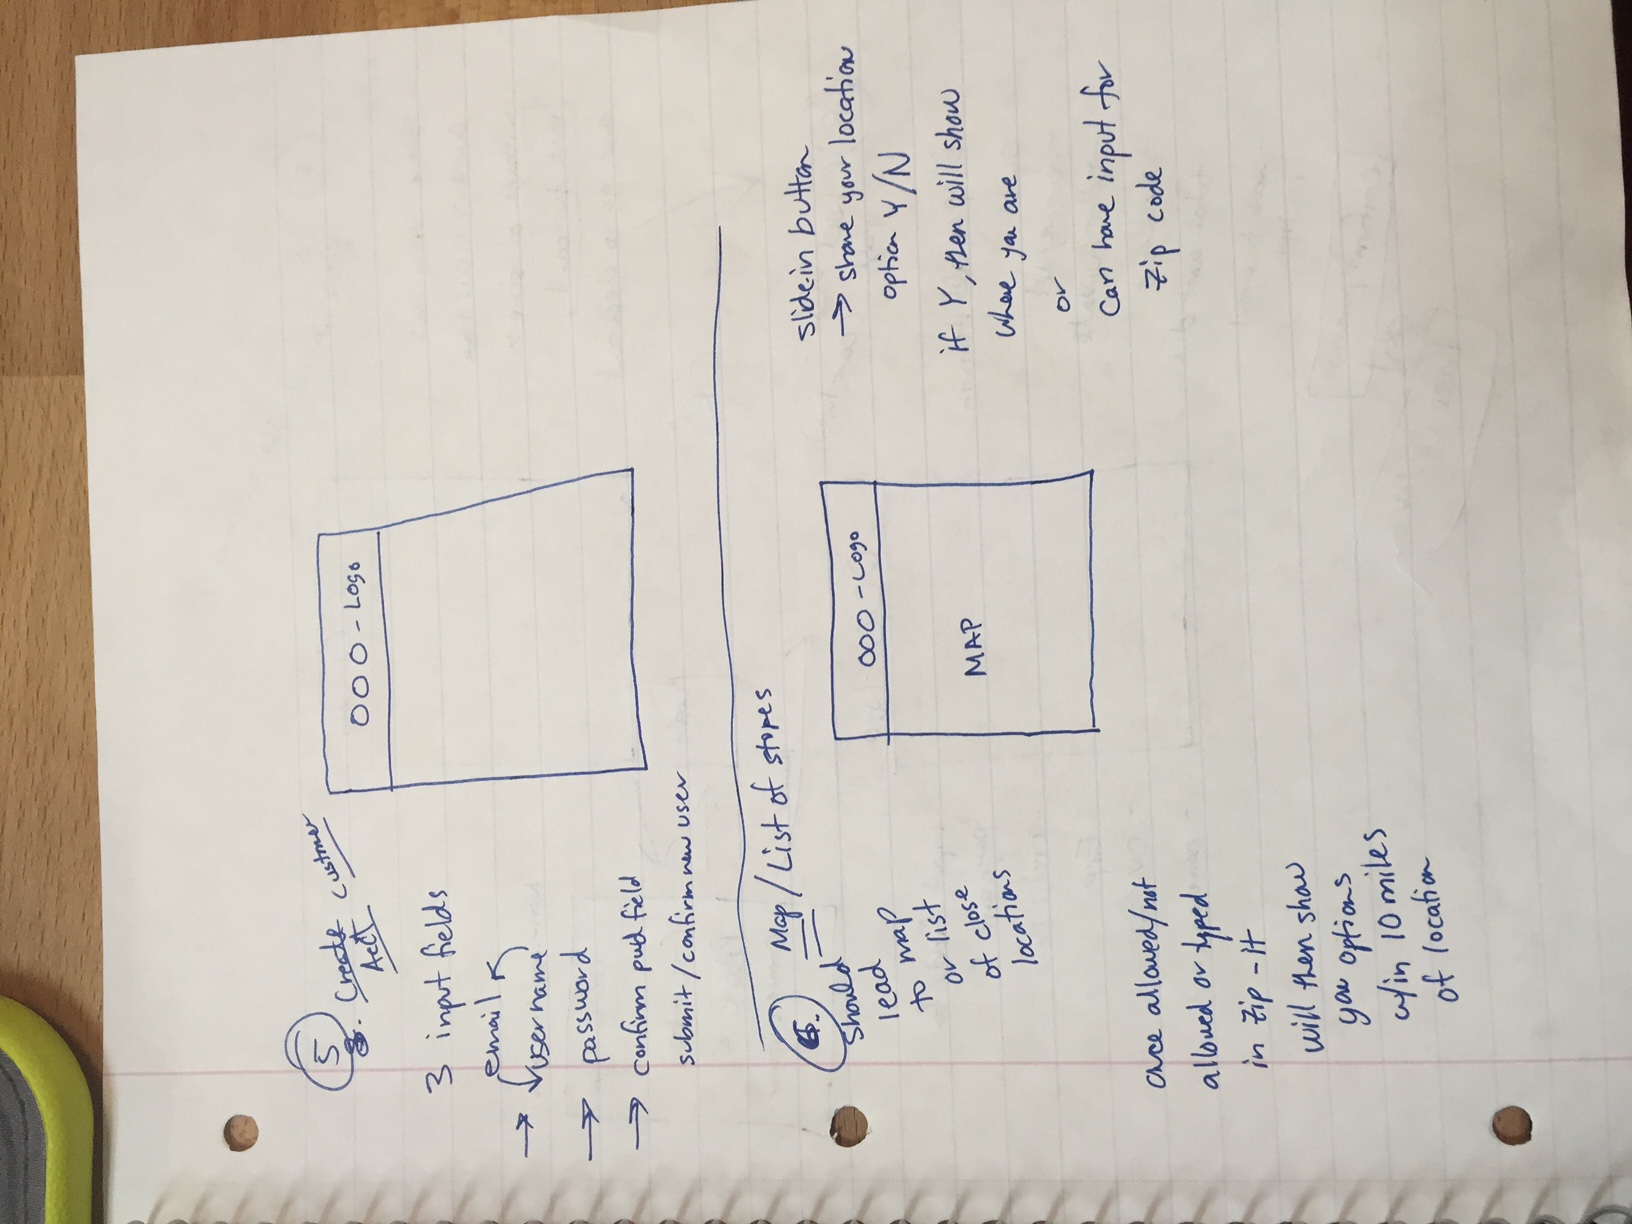 5
8. Create Customer
Acct
3 input fields
email
→ username
→ password
→ confirm pwd field
submit/confirm new user
OOO - Logo
6. Map / List of stores
should
lead
to map
or list
of close
locations
OOO - Logo
MAP
slide-in button
→ share your location
option Y/N
if Y, then will show
where you are
or
can have input for
Zip code
once allowed/not
allowed or typed
in zip - it
will then show
you options
w/in 10 miles
of location